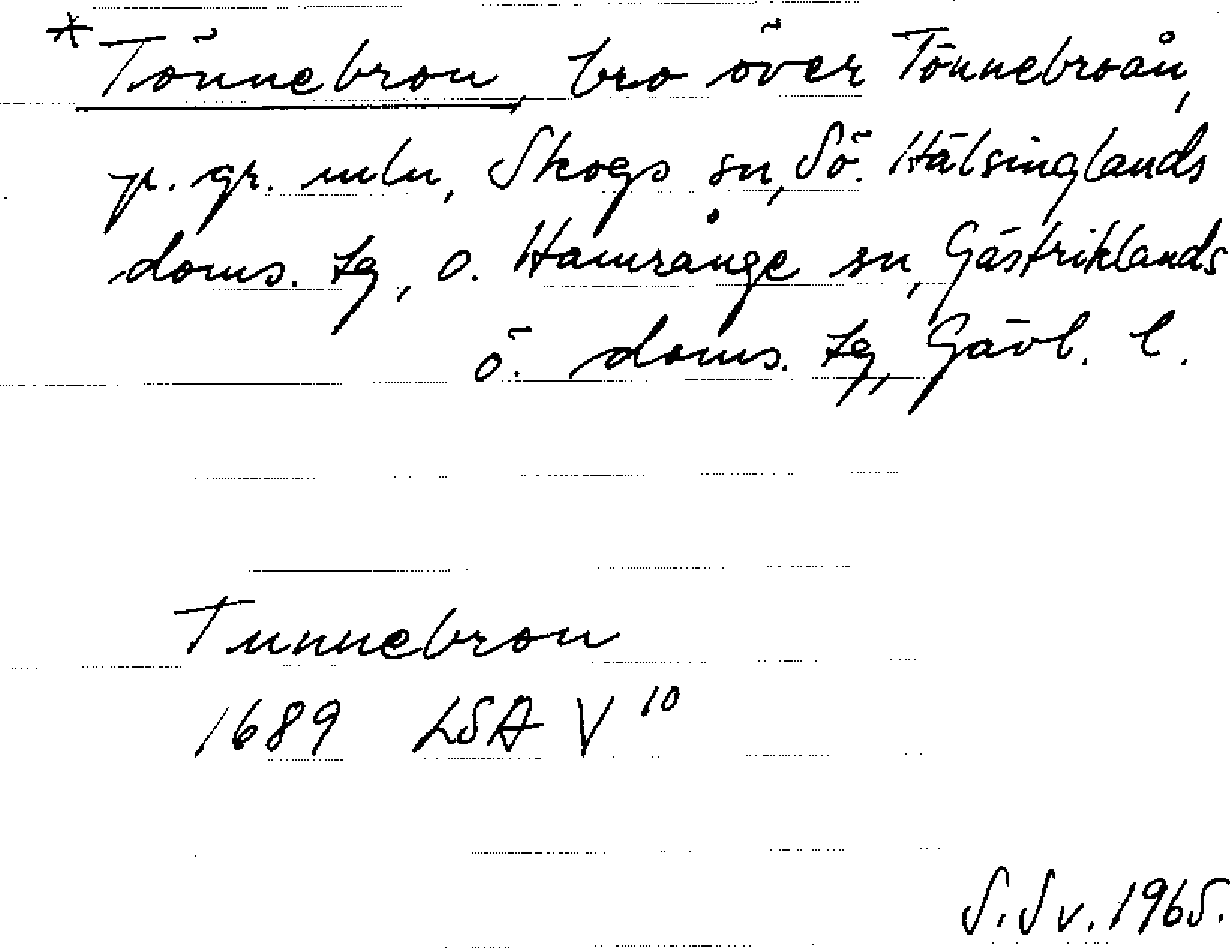 *Tönnebron, bro över Tönnebroån,
p. gr. mln, Skogs sn, Sö. Hälsinglands
doms. tg, o. Hamrånge sn, Gästriklands
ö. doms. tg, Gävl. l.
Tunnebron
1689 LSA V 10
S. Sv. 1965.